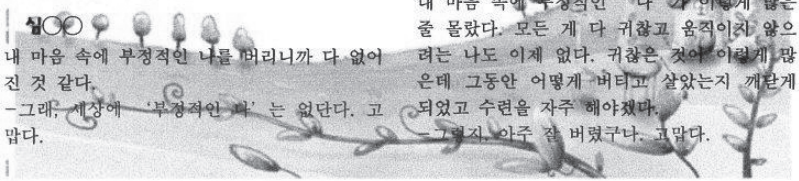 심○○
내 마음 속에 부정적인 나를 버리니까 다 없어
진 것 같다.
-그래, 세상에 '부정적인 나'는 없단다. 고
맙다.
내 마음 속에 부정적인 '나'가 이렇게 많은
줄 몰랐다. 모든 게 다 귀찮고 움직이지 않으
려는 나도 이제 없다. 귀찮은 것이 이렇게 많
은데 그동안 어떻게 버티고 살았는지 깨닫게
되었고 수련을 자주 해야겠다.
-그렇지, 아주 잘 버렸구나. 고맙다.